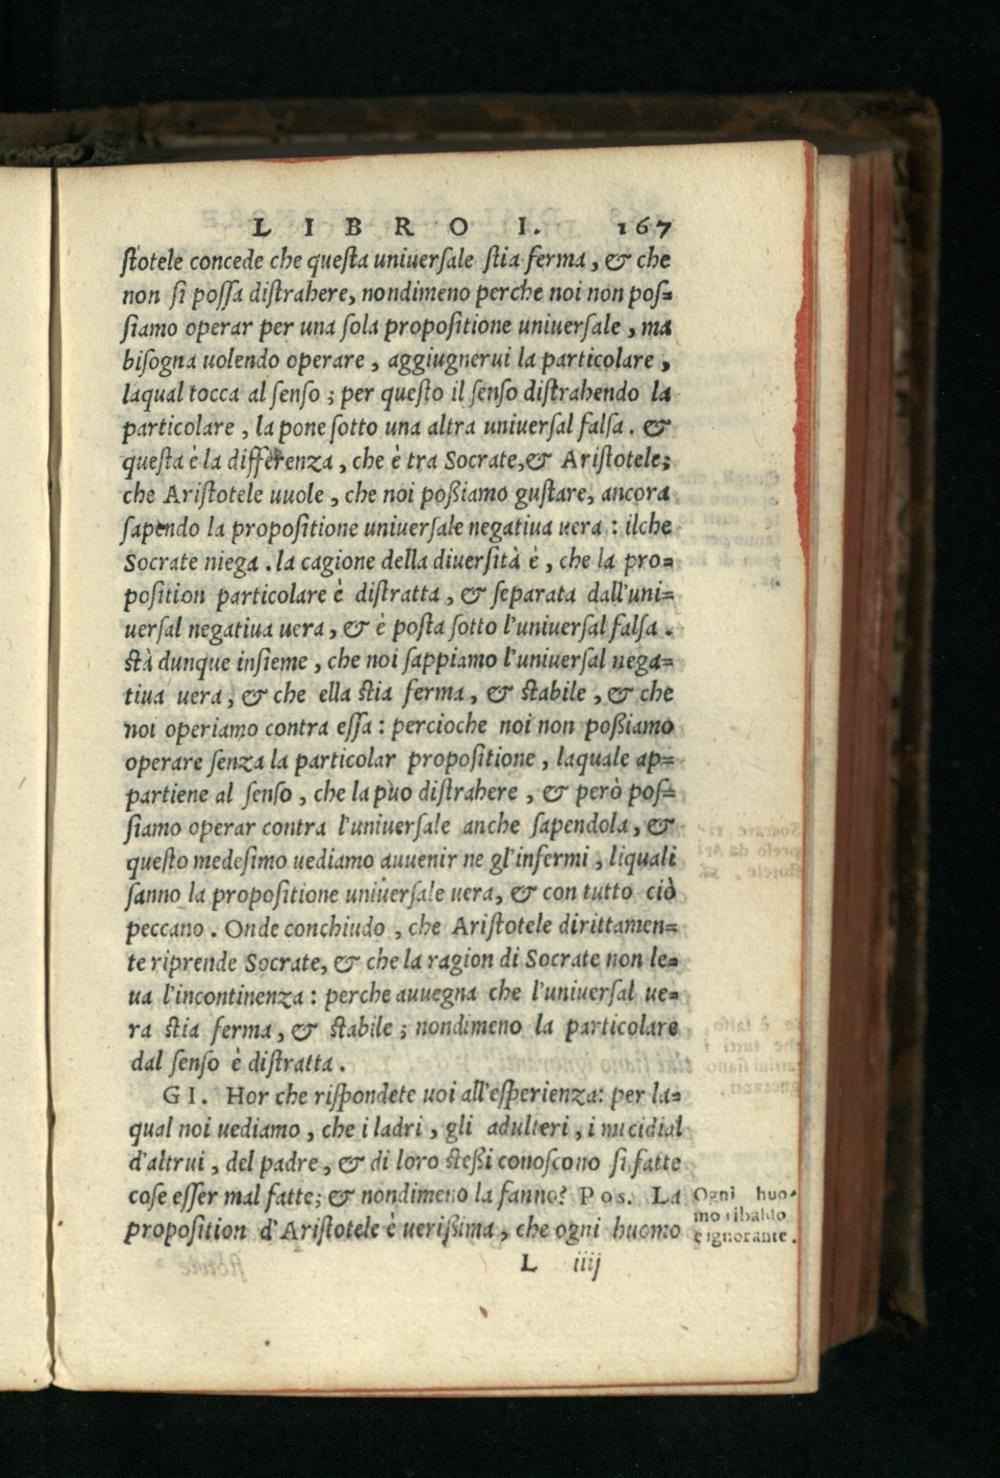 LIBRO I. 167
ſtotele concede che queſta uniuerſale ſtia ferma, & che
non ſi poſſa diſtrahere, nondimeno perche noi non poſ-
ſiamo operar per una ſola propoſitione uniuerſale, ma
biſogna uolendo operare, aggiugnerui la particolare,
laqual tocca al ſenſo; per queſto il ſenſo diſtrahendo la
particolare, la pone ſotto una altra uniuerſal falſa. &
queſta è la differenza, che è tra Socrate, & Ariſtotele;
che Ariſtotele uuole, che noi poßiamo guſtare, ancora
ſapendo la propoſitione uniuerſale negatiua uera: ilche
Socrate niega. la cagione della diuerſità è, che la pro-
poſition particolare è diſtratta, & ſeparata dall'uni-
uerſal negatiua uera, & è poſta ſotto l'uniuerſal falſa.
ſtà dunque inſieme, che noi ſappiamo l'uniuerſal nega-
tiua uera, & che ella ſtia ferma, & ſtabile, & che
noi operiamo contra eſſa: percioche noi non poßiamo
operare ſenza la particolar propoſitione, laquale ap-
partiene al ſenſo, che la può diſtrahere, & però poſ-
ſiamo operar contra l'uniuerſale anche ſapendola, &
queſto medeſimo uediamo auuenir ne gl'infermi, liquali
ſanno la propoſitione uniuerſale uera, & con tutto ciò
peccano. Onde conchiudo, che Ariſtotele dirittamen-
te riprende Socrate, & che la ragion di Socrate non le-
ua l'incontinenza: perche auuegna che l'uniuerſal ue-
ra ſtia ferma, & ſtabile; nondimeno la particolare
dal ſenſo è diſtratta.
GI. Hor che riſpondete uoi all'eſperienza: per la-
qual noi uediamo, che i ladri, gli adulteri, i micidial
d'altrui, del padre, & di loro ſteßi conoſcono ſi fatte
coſe eſſer mal fatte; & nondimeno la fanno? Pos. La
propoſition d'Ariſtotele è uerißima, che ogni huomo
Ogni huo-
mo ribaldo
e ignorante.
L iiij